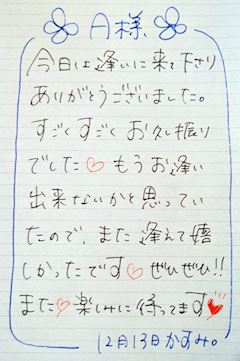 A様
今日は逢いに来て下さり
ありがとうございました。
すごくすごくお久し振り
でした♡もうお逢い
出来ないかと思ってい
たので、また逢えて嬉
しかったです♡ぜひぜひ!!
また♡楽しみに待ってます♥
12月13日かすみ。